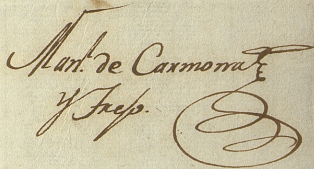 Man.l de Carmona
y Freſ.